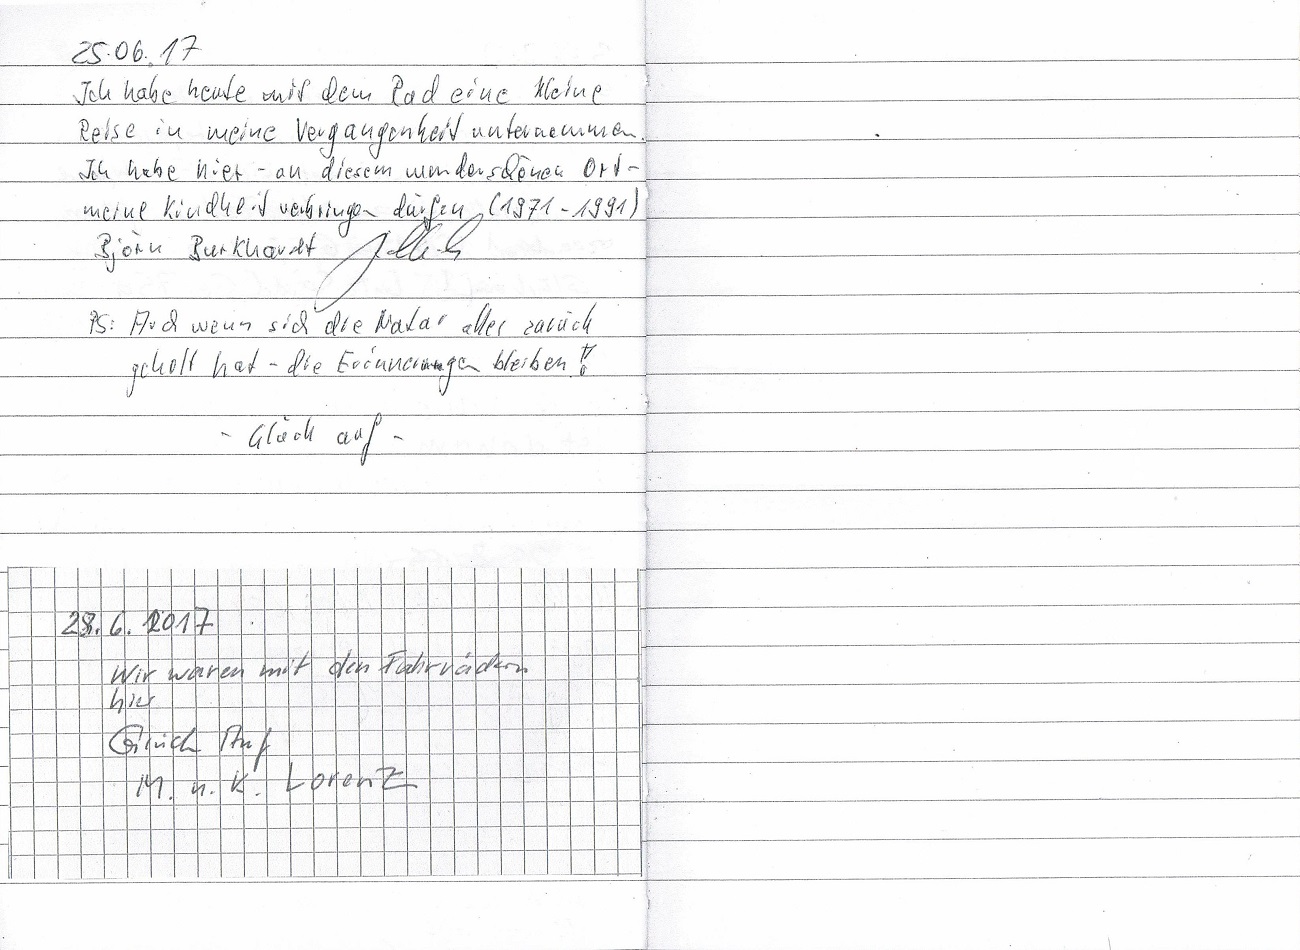 25.06.17
Ich habe heute mit dem Rad eine kleine
Reise in meine Vergangenheit unternommen.
Ich habe hier - an diesem wunderschönen Ort -
meine Kindheit verbringen dürfen (1971-1991)
Björn Burkhardt
PS: Auch wenn sich die Natur alles zurück
geholt hat - die Erinnerungen bleiben!!
- Glück auf -
28.6.2017
Wir waren mit den Fahrrädern
hier
Glück Auf
M. u. K. Lorenz